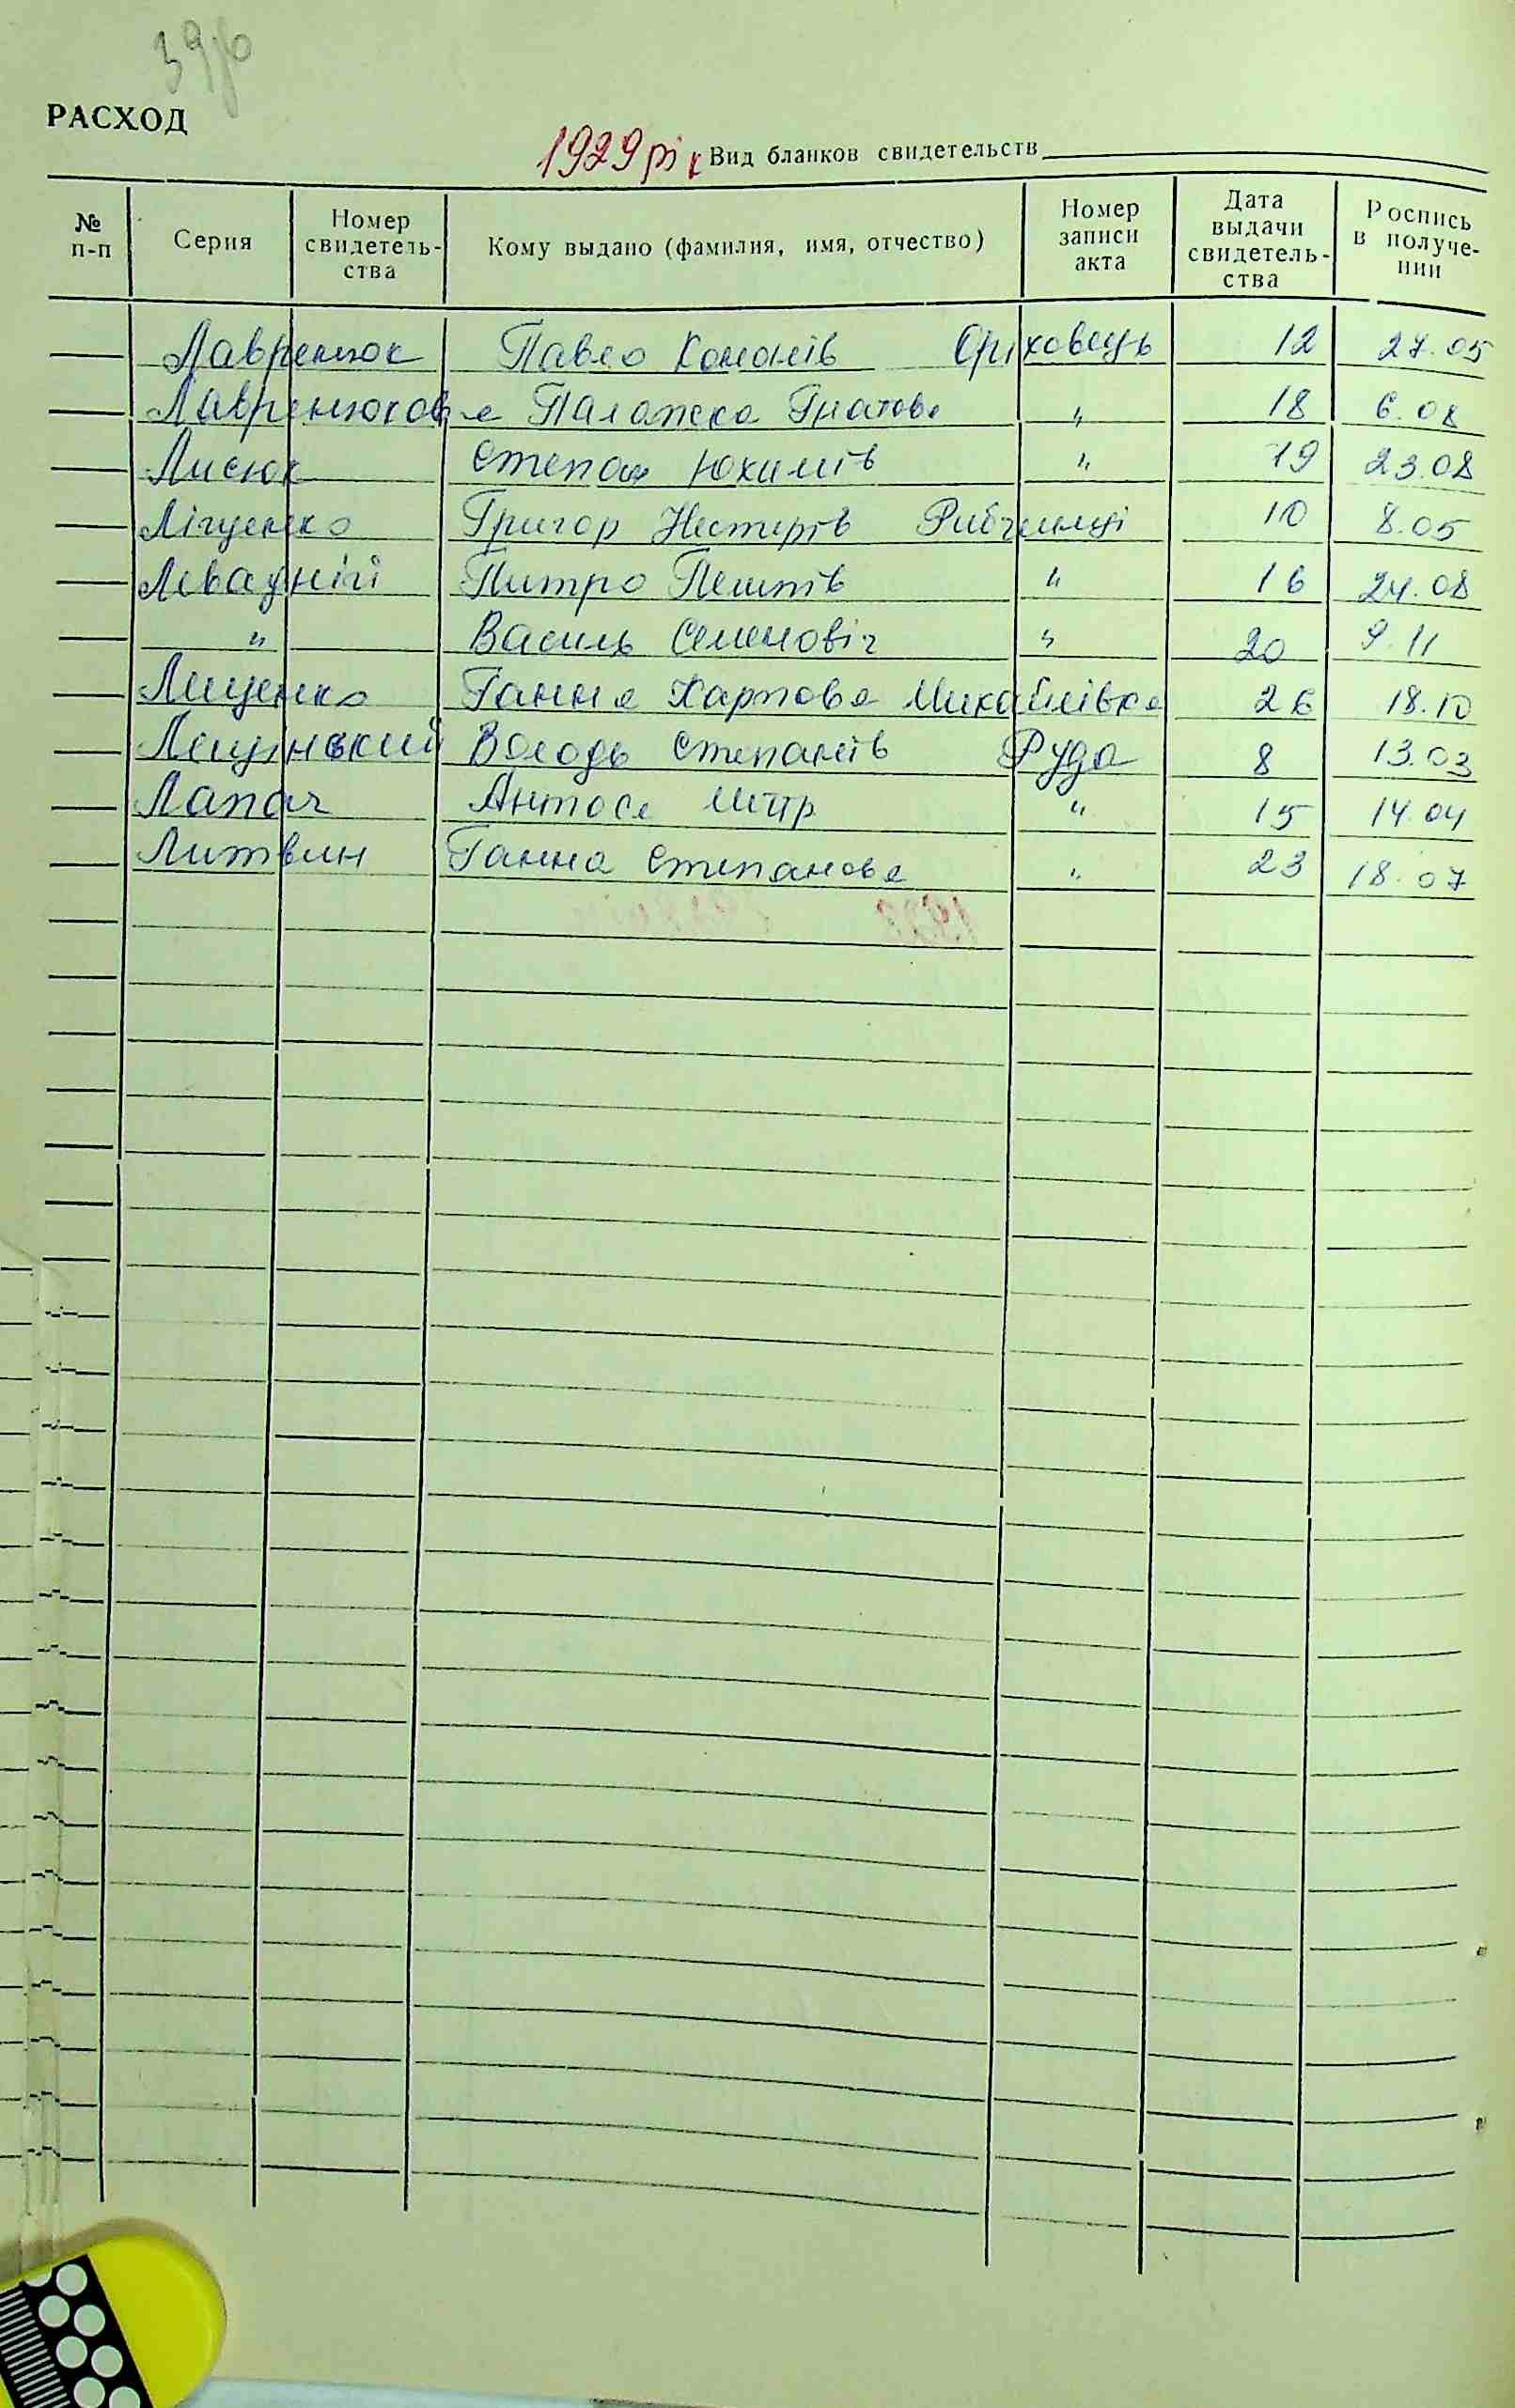 РАСХОД
1929 рік Вид бланков свидетельств
№ п-п Серия Номер свидетель- ства Кому выдано (фамилия, имя, отчество) Номер записи акта Дата выдачи свидетель- ства Роспись в получе- нии
Лавренюк Павло Кононів Оріховець 12 27.05
Лавренюкова Палажка Гнатова " 18 6.08
Лисюк Степан Юхимів " 19 23.08
Ліщенко Григор Нестерів Рибчинці 10 8.05
Левадній Питро " 16 24.08
" Василь Семеновіч " 20 9.11
Лищенко Ганна Карпова Михайлівка 26 18.10
Лещинський Володь Степанів Руда 8 13.03
Лапач Антося " 15 14.04
Литвин Ганна Степанова " 23 18.07